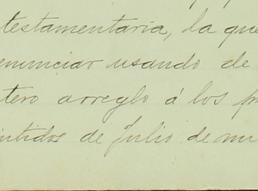 testamentaria, la que
enunciar usando de
tero arreglo á los p
intidos de Julio de mi